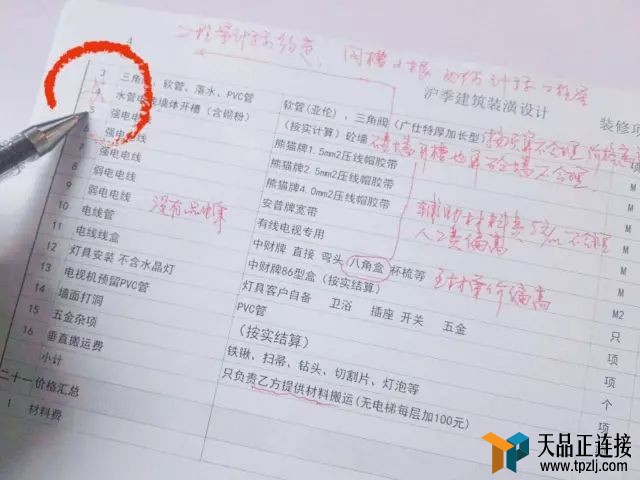 工程量计算约定,
沪季建筑装潢设计
装修项
3 三角 、软管、落水、PVC管
软管(亚伦)、三角阀(广仕特厚加长型
项
4 水管电 墙体开槽(含糊粉)
(按实计算)砼墙
M
强电电线
熊猫牌1.5mm2压线帽胶带
M
6 强电电线
熊猫牌2.5mm2压线帽胶带
M
7 强电电线
熊猫牌4.0mm2压线帽胶带
M
8 弱电电线
安普牌宽带
M
9 弱电电线
有线电视专用
M
没有品牌
辅助材料
人工费偏高
10 电线管
中财牌 直接 弯头 八角盒 杯梳等
M
11 电线线盒
中财牌86型盒(按实结算)
M2
主材单价偏高
12 灯具安装 不含水晶灯
灯具客户自备 卫浴 插座 开关 五金
只
13 电视机预留PVC管
PVC管
项
14 墙面打洞
(按实结算)
项
15 五金杂项
铁锹、扫帚、钻头、切割片、灯泡等
个
16 垂直搬运费
只负责乙方提供材料搬运(无电梯每层加100元)
项
小计
二十一 价格汇总
1 材料费
天品正连接
www.tpzlj.com